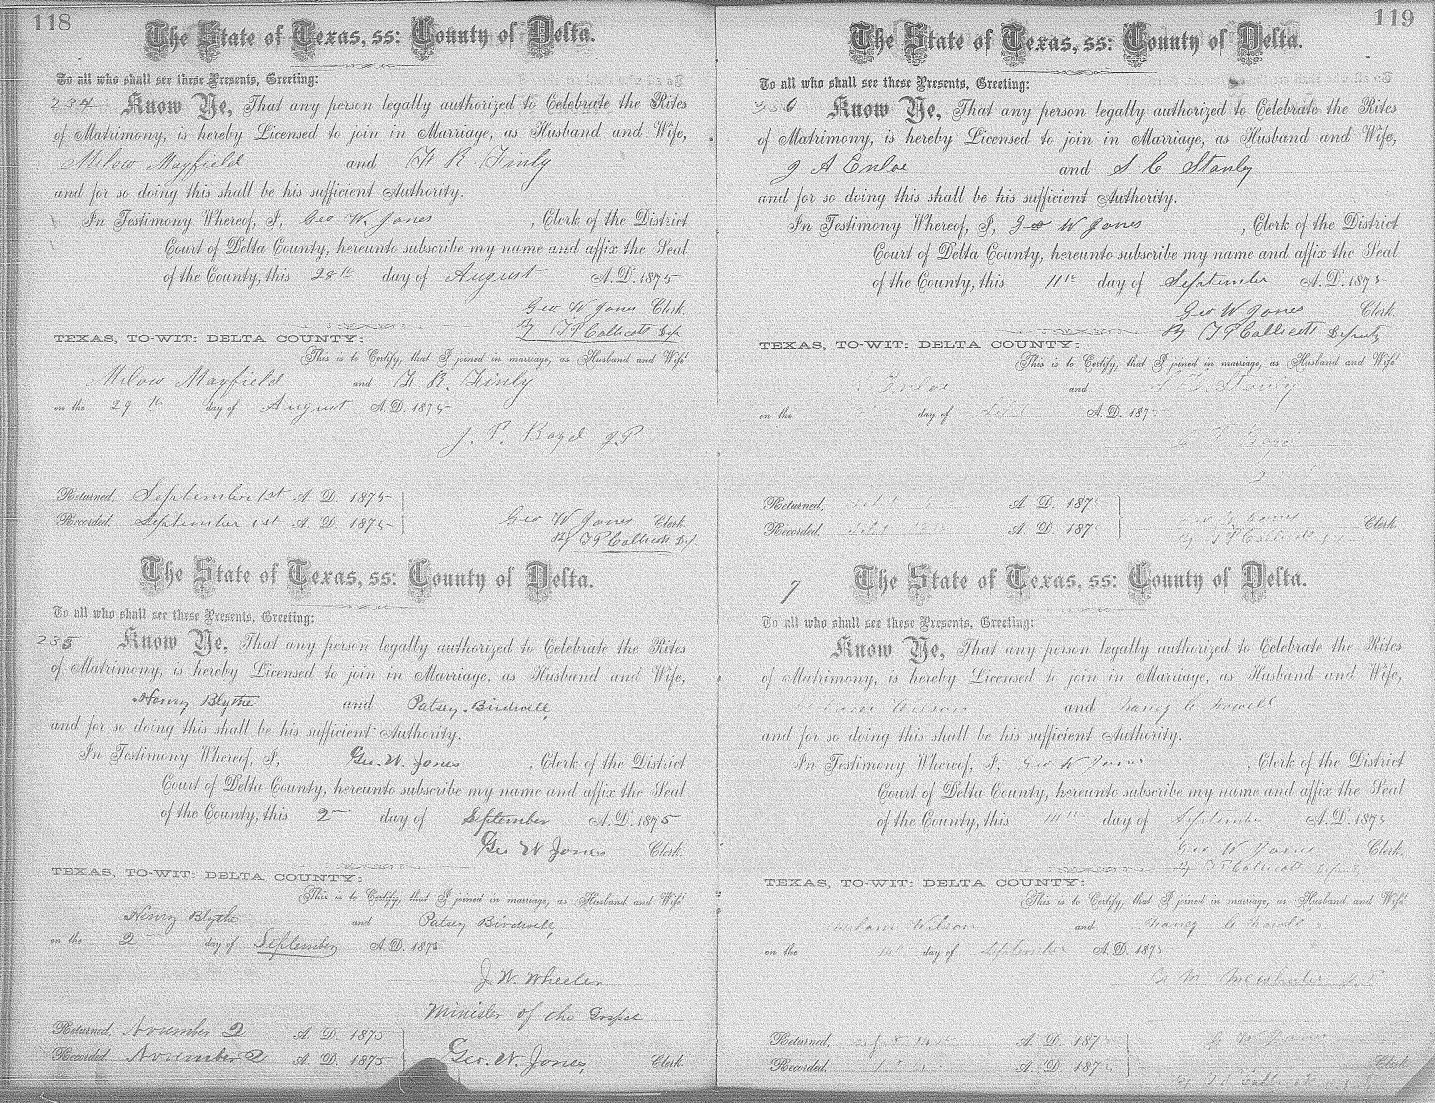 118
The State of Texas, ss: County of Delta.
To all who shall see these Presents, Greeting:
234 Know Ye, That any person legally authorized to Celebrate the Rites
of Matrimony, is hereby Licensed to join in Marriage, as Husband and Wife,
Milow Mayfield and F R Finly
and for so doing this shall be his sufficient Authority.
In Testimony Whereof, I, Geo W. Jones, Clerk of the District
Court of Delta County, hereunto subscribe my name and affix the Seal
of the County, this 28th day of August A.D. 1875
Geo W Jones Clerk.
By T P Callicott Dep
TEXAS, TO-WIT: DELTA COUNTY:
This is to Certify, that I joined in marriage, as Husband and Wife
Milow Mayfield and F. R. Finly
on the 29th day of August A.D. 1875
J. P. Boyd J.P
Returned, September 1st A. D. 1875
Recorded, September 1st A. D. 1875
Geo W Jones Clerk
By T P Callicott Dep
The State of Texas, ss: County of Delta.
To all who shall see these Presents, Greeting:
235 Know Ye, That any person legally authorized to Celebrate the Rites
of Matrimony, is hereby Licensed to join in Marriage, as Husband and Wife,
Henry Blythe and Patsey Birdwell,
and for so doing this shall be his sufficient Authority.
In Testimony Whereof, I, Geo. W. Jones, Clerk of the District
Court of Delta County, hereunto subscribe my name and affix the Seal
of the County, this 2 day of September A.D. 1875
Geo W Jones Clerk.
TEXAS, TO-WIT: DELTA COUNTY:
This is to Certify, that I joined in marriage, as Husband and Wife
Henry Blythe and Patsey Birdwell,
on the 2 day of September A.D. 1875
J. W. Wheeler
Minister of the Gospel
Returned, November 2 A. D. 1875
Recorded, November 2 A. D. 1875
Geo. W. Jones, Clerk
119
The State of Texas, ss: County of Delta.
To all who shall see these Presents, Greeting:
236 Know Ye, That any person legally authorized to Celebrate the Rites
of Matrimony, is hereby Licensed to join in Marriage, as Husband and Wife,
J A Enloe and S C Stanly
and for so doing this shall be his sufficient Authority.
In Testimony Whereof, I, Geo W Jones, Clerk of the District
Court of Delta County, hereunto subscribe my name and affix the Seal
of the County, this 11th day of September A.D. 1875
Geo W Jones Clerk.
By T P Callicott Deputy
TEXAS, TO-WIT: DELTA COUNTY:
This is to Certify, that I joined in marriage, as Husband and Wife
Enloe and Stanly
on the day of A.D. 187
Boyd
Returned, A. D. 187
Recorded, A. D. 187
Jones Clerk
By T P Callicott
7 The State of Texas, ss: County of Delta.
To all who shall see these Presents, Greeting:
Know Ye, That any person legally authorized to Celebrate the Rites
of Matrimony, is hereby Licensed to join in Marriage, as Husband and Wife,
and Nancy C
and for so doing this shall be his sufficient Authority.
In Testimony Whereof, I, Geo W Jones, Clerk of the District
Court of Delta County, hereunto subscribe my name and affix the Seal
of the County, this day of September A.D. 1875
Geo W Jones Clerk.
By T P Callicott Deputy
TEXAS, TO-WIT: DELTA COUNTY:
This is to Certify, that I joined in marriage, as Husband and Wife
Wilson and Nancy C
on the day of September A.D. 1875
Returned, A. D. 187
Recorded, A. D. 187
Clerk